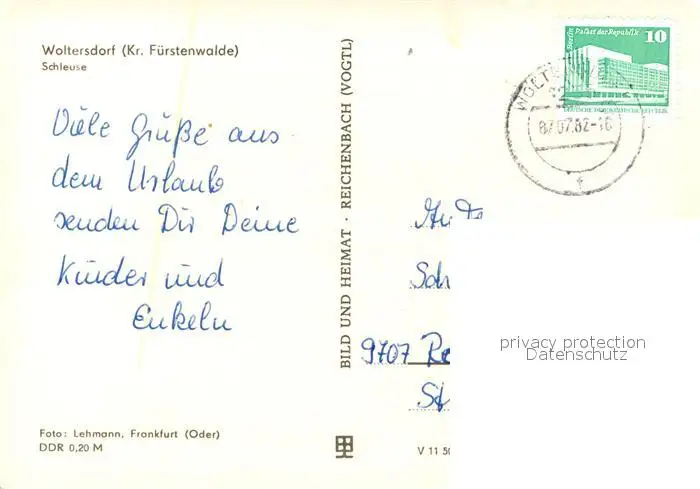 Woltersdorf (Kr. Fürstenwalde)
Schleuse
Viele Grüße aus
dem Urlaub
senden Dir Deine
Kinder und
Enkeln
Foto: Lehmann, Frankfurt (Oder)
DDR 0,20 M
BILD UND HEIMAT · REICHENBACH (VOGTL)
V 11 50
Berlin Palast der Republik 10
DEUTSCHE DEMOKRATISCHE REPUBLIK
07.82-16
f
Sch
9707 Re
St
privacy protection
Datenschutz